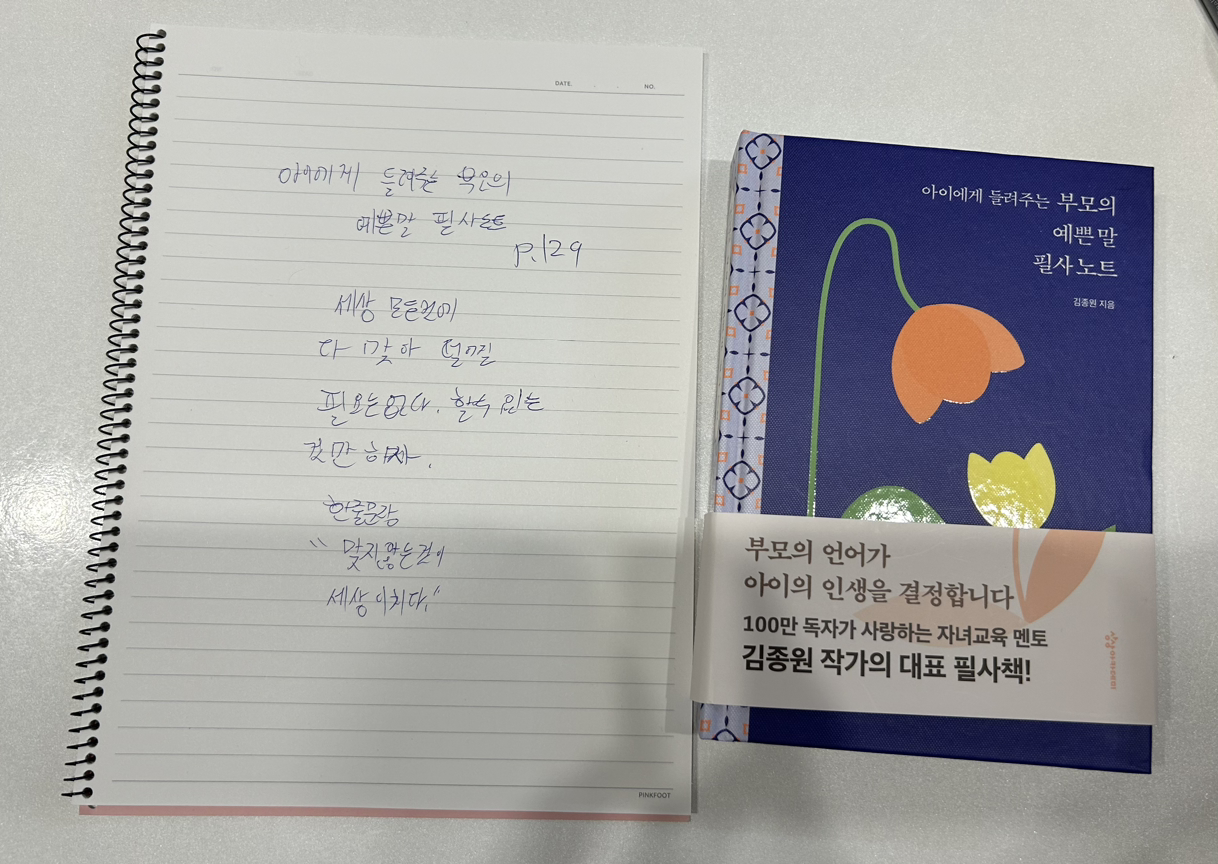 DATE. . . NO.
아이에게 들려주는 부모의
예쁜말 필사노트
p.129
세상 모든것에
다 맞아 떨어질
필요는없다. 할수 있는
것만 하자.
한줄문장
"맞지않는것이
세상이치다."
PINKFOOT
아이에게 들려주는 부모의
예쁜 말
필사 노트
김종원 지음
부모의 언어가
아이의 인생을 결정합니다
100만 독자가 사랑하는 자녀교육 멘토
김종원 작가의 대표 필사책!
상상아카데미